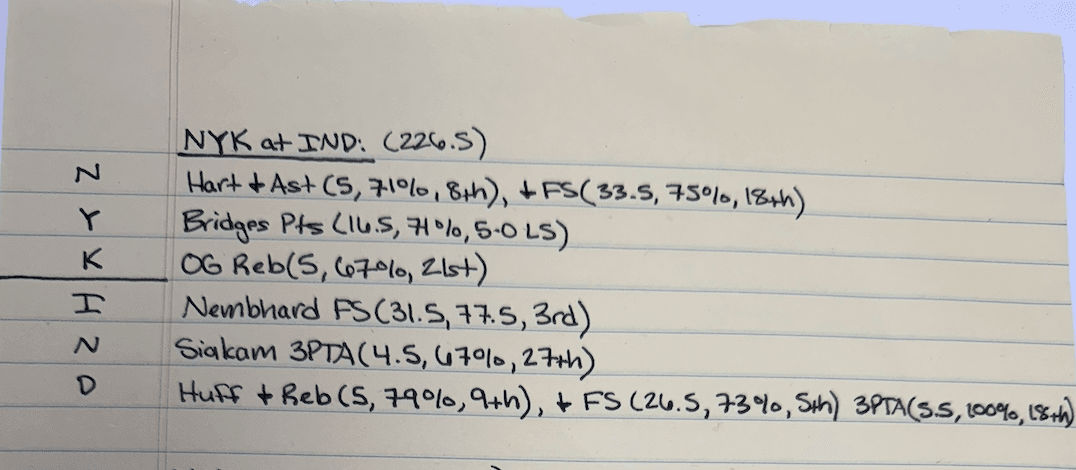 NYK at IND: (226.5)
N Hart ↓ Ast (5, 71%, 8th), ↓ FS (33.5, 75%, 18th)
Y Bridges Pts (16.5, 71%, 5-0 L5)
K OG Reb (5, 67%, 21st)
I Nembhard FS (31.5, 77.5, 3rd)
N Siakam 3PTA (4.5, 67%, 27th)
D Huff ↓ Reb (5, 79%, 9th), ↓ FS (26.5, 73%, 5th) 3PTA (3.5, 100%, 18th)